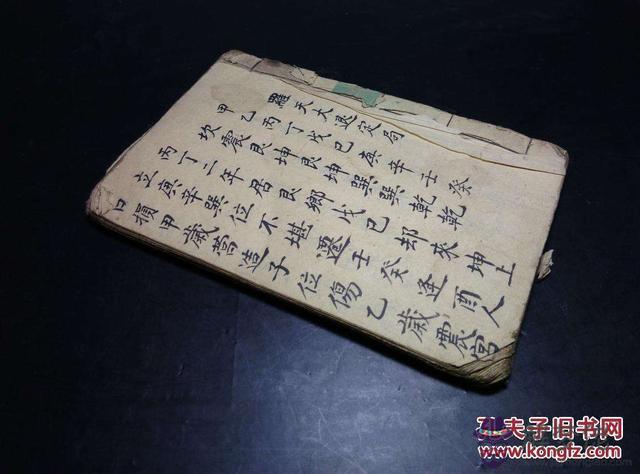 羅天大退定局
甲乙丙丁戊己庚辛壬癸
坎震艮坤艮坤巽巽乾乾
丙丁二年居艮鄉戊己却來坤上
立庚辛巽位不堪遷壬癸逢酉人
口損甲歲蒿造子位傷乙歲震宮
孔夫子旧书网
www.kongfz.com